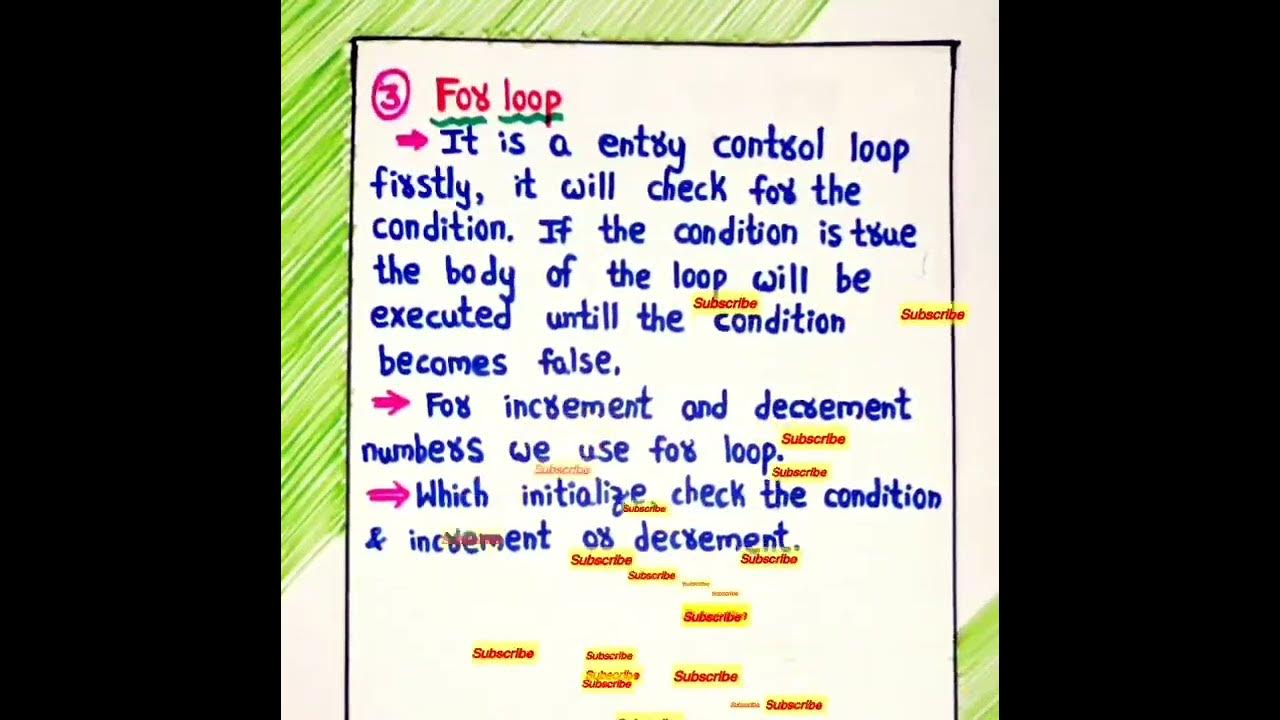 3 For loop
→ It is a entry control loop
firstly, it will check for the
condition. If the condition is true
the body of the loop will be
Subscribe
Subscribe
executed untill the condition
becomes false.
→ For increment and decrement
Subscribe
numbers we use for loop.
Subscribe
Subscribe
⇒ Which initialize, check the condition
Subscribe
& increment or decrement.
Subscribe
Subscribe
Subscribe
Subscribe
Subscribe
Subscribe
Subscribe
Subscribe
Subscribe
Subscribe
Subscribe
Subscribe